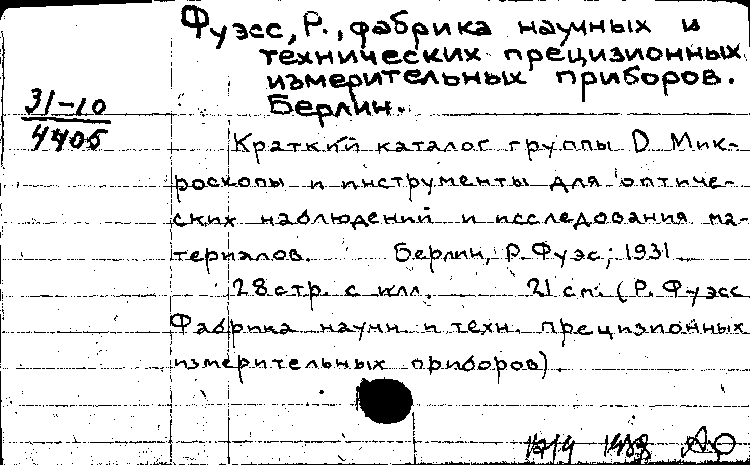 Фуэсс, Р., фабрика научных и
технических прецизионных
измерительных приборов.
Берлин.
31-10
4405
Краткий каталог группы D Мик-
роскопы и инструменты для оптиче-
ских наблюдений и исследования ма-
териалов. Берлин, Р. Фуэс, 1931
28 стр. с илл. 21 см. (Р. Фуэсс
Фабрика научн. и техн. прецизионных
измерительных приборов).